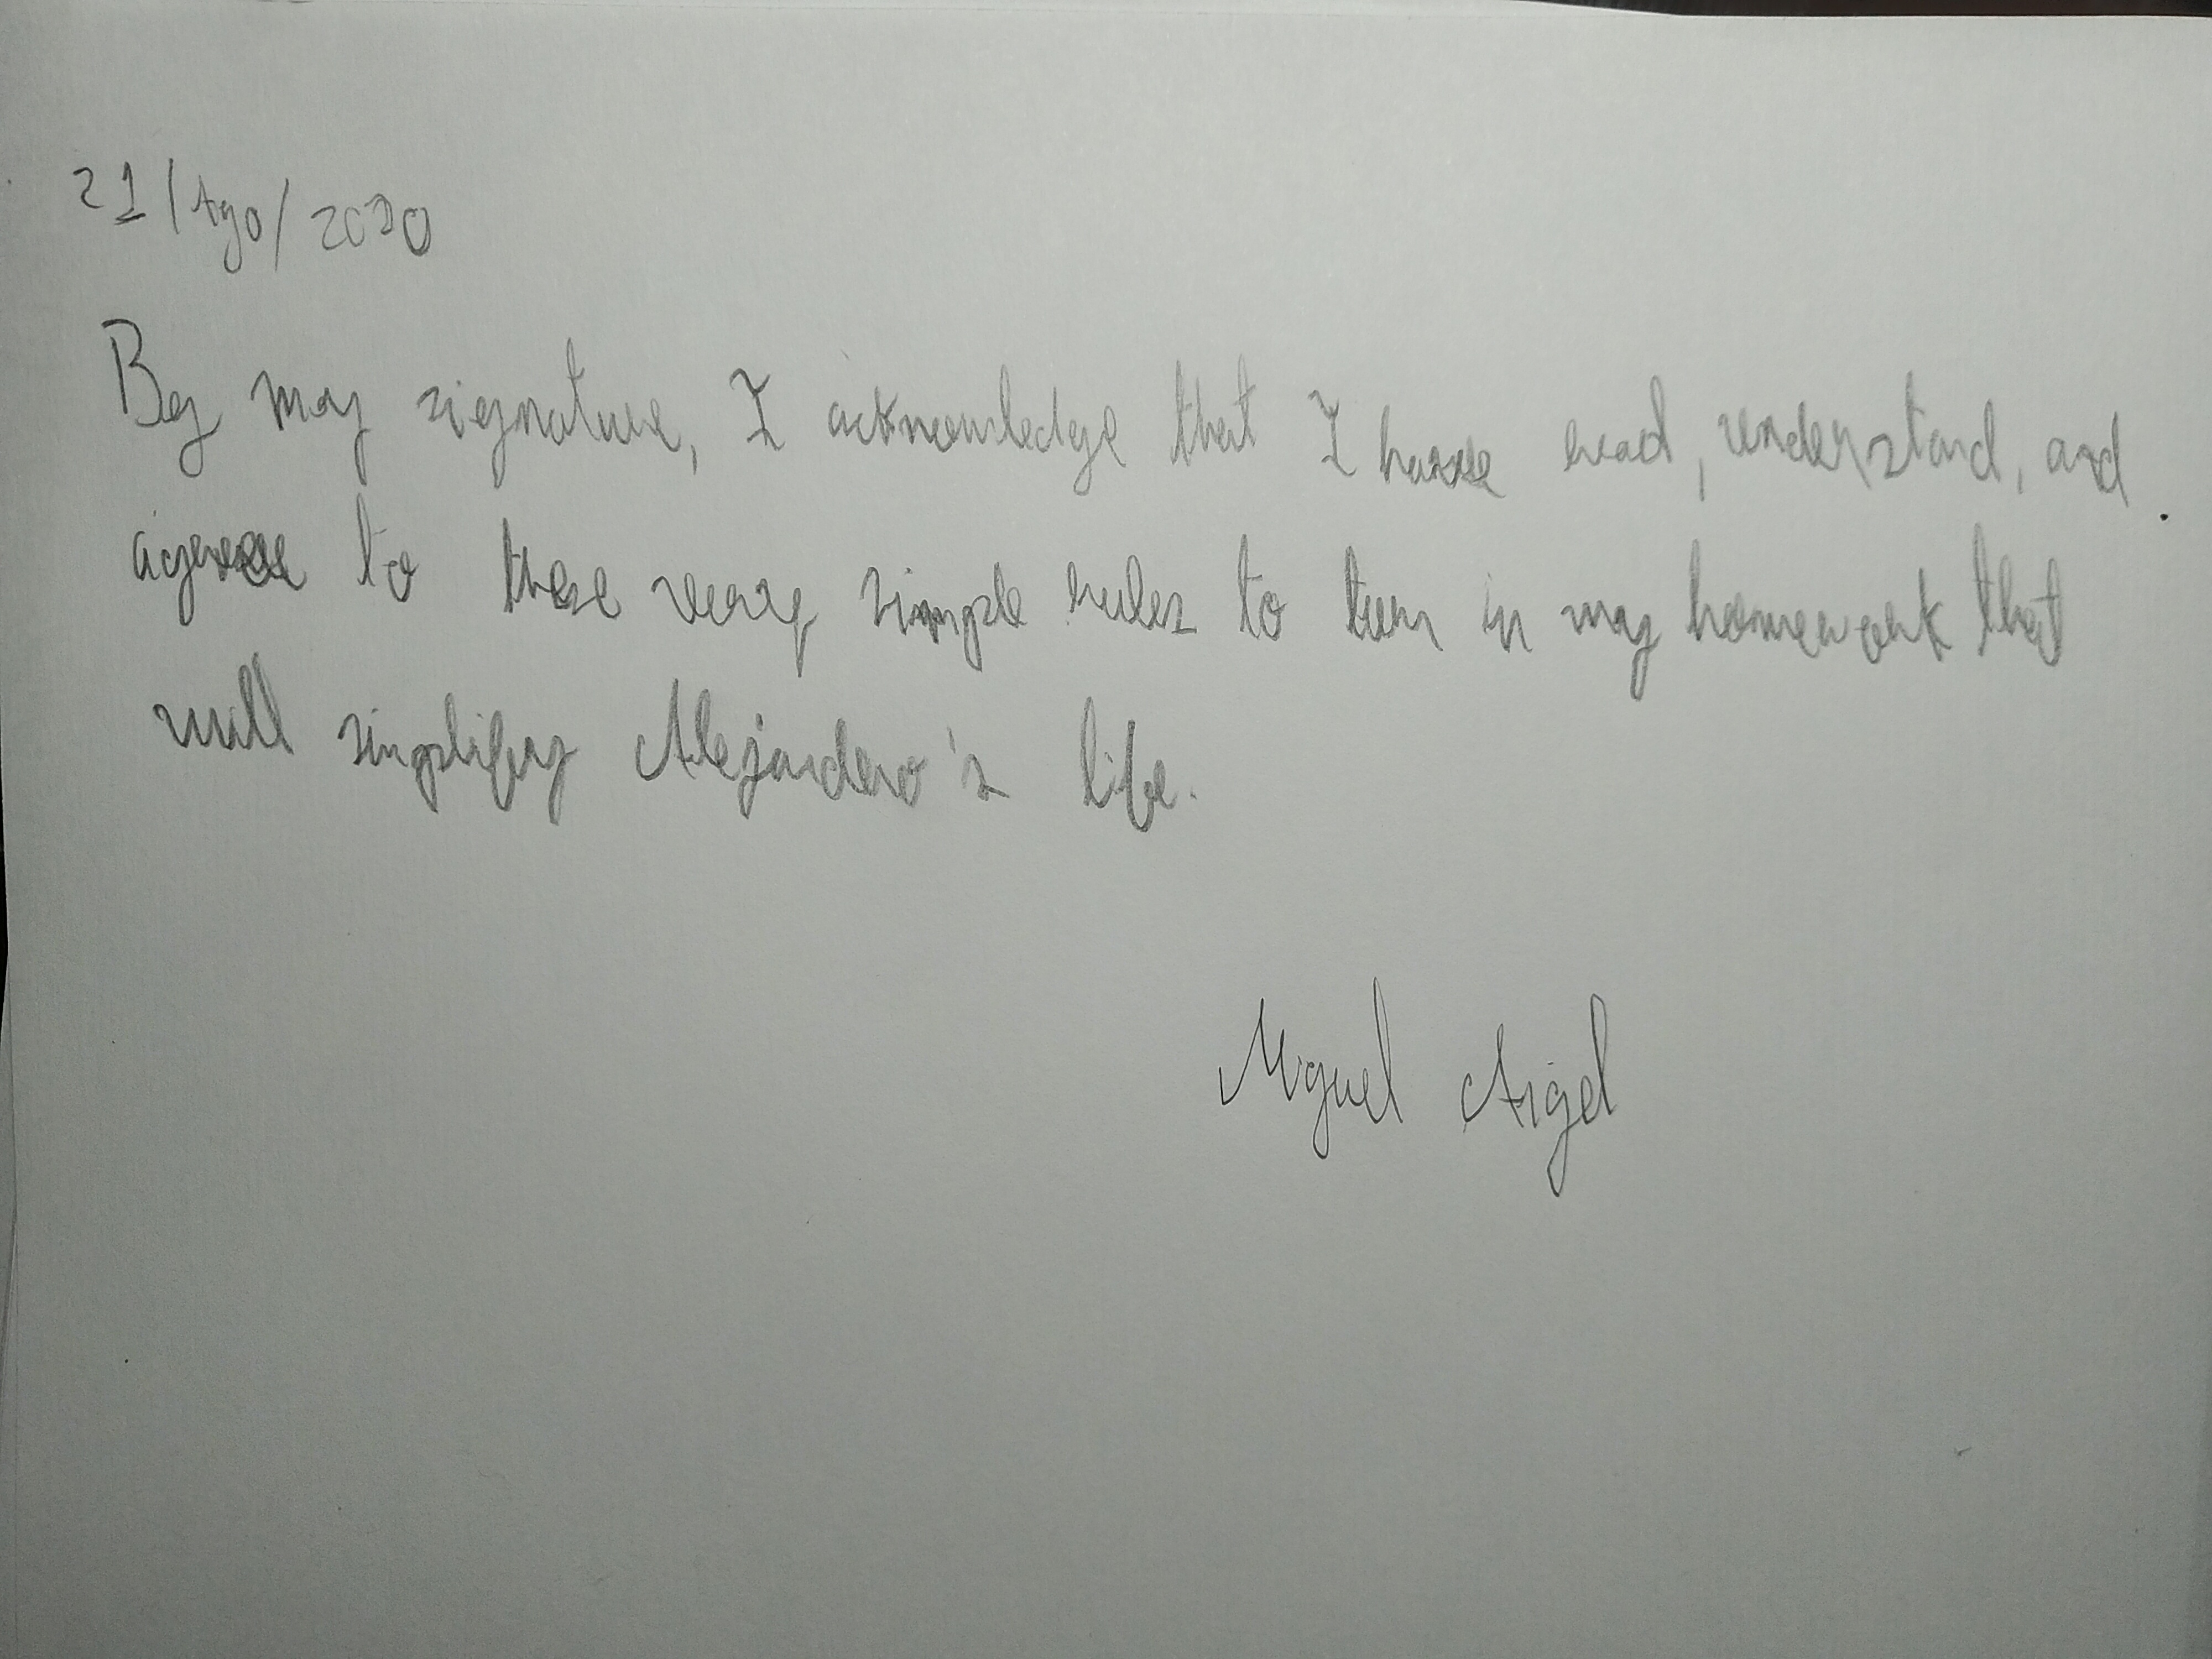 21/Ago/2020
By my signature, I acknowledge that I have read, understand, and
agree to these very simple rules to turn in my homework that
will simplify Alejandro's life.
Miguel Angel